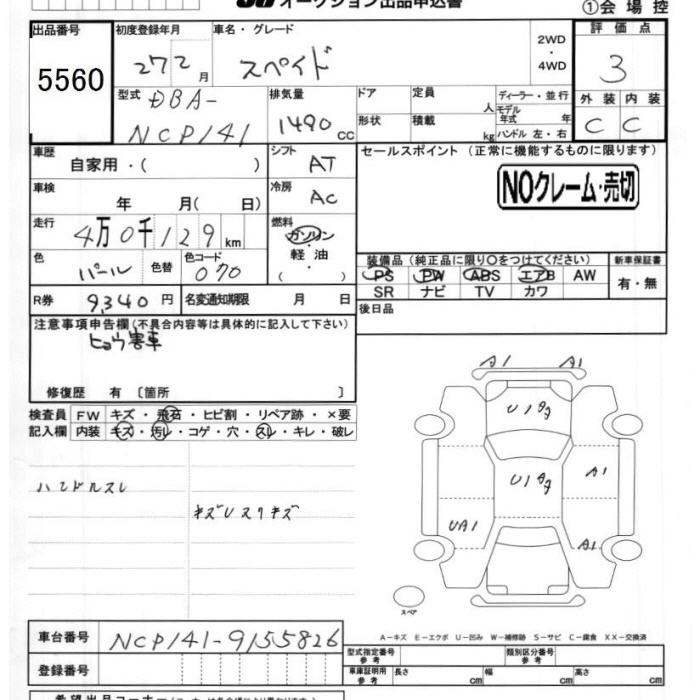 オークション出品申込書
①会場控
出品番号 初度登録年月 車名・グレード 評価点
5560 272月 スペイド 2WD・4WD 3
型式 DBA- 排気量 ドア 定員 人 ディーラー・並行 外装 内装
NCP141 1490cc 形状 積載 kg モデル年式 年 ハンドル 左・右 C C
車歴 自家用・( ) シフト AT セールスポイント (正常に機能するものに限ります)
車検 年 月(日) 冷房 AC NOクレーム・売切
走行 4万0千129km 燃料 ガソリン・軽油・( )
色 パール 色替 色コード 070
装備品(純正品に限り○をつけてください) 新車保証書
PS PW ABS エアB AW 有・無
SR ナビ TV カワ
R券 9,340円 名変通知期限 月 日 後日品
注意事項申告欄(不具合内容等は具体的に記入して下さい)
ヒョウ害車
修復歴 有 〔箇所 〕
検査員 FW キズ・飛石・ヒビ割・リペア跡・×要
記入欄 内装 キズ・汚レ・コゲ・穴・スレ・キレ・破レ
ハンドルスレ
キズUスリキズ
A1 A1
U1
U1
A1
UA1 A1
スペア
A−キズ E−エクボ U−凹み W−補修跡 S−サビ C−腐食 XX−交換済
車台番号 NCP141-9155826
型式指定番号 参考 類別区分番号 参考
登録番号 車庫証明用 参考 長さ cm 幅 cm 高さ cm
希望出品コーナー